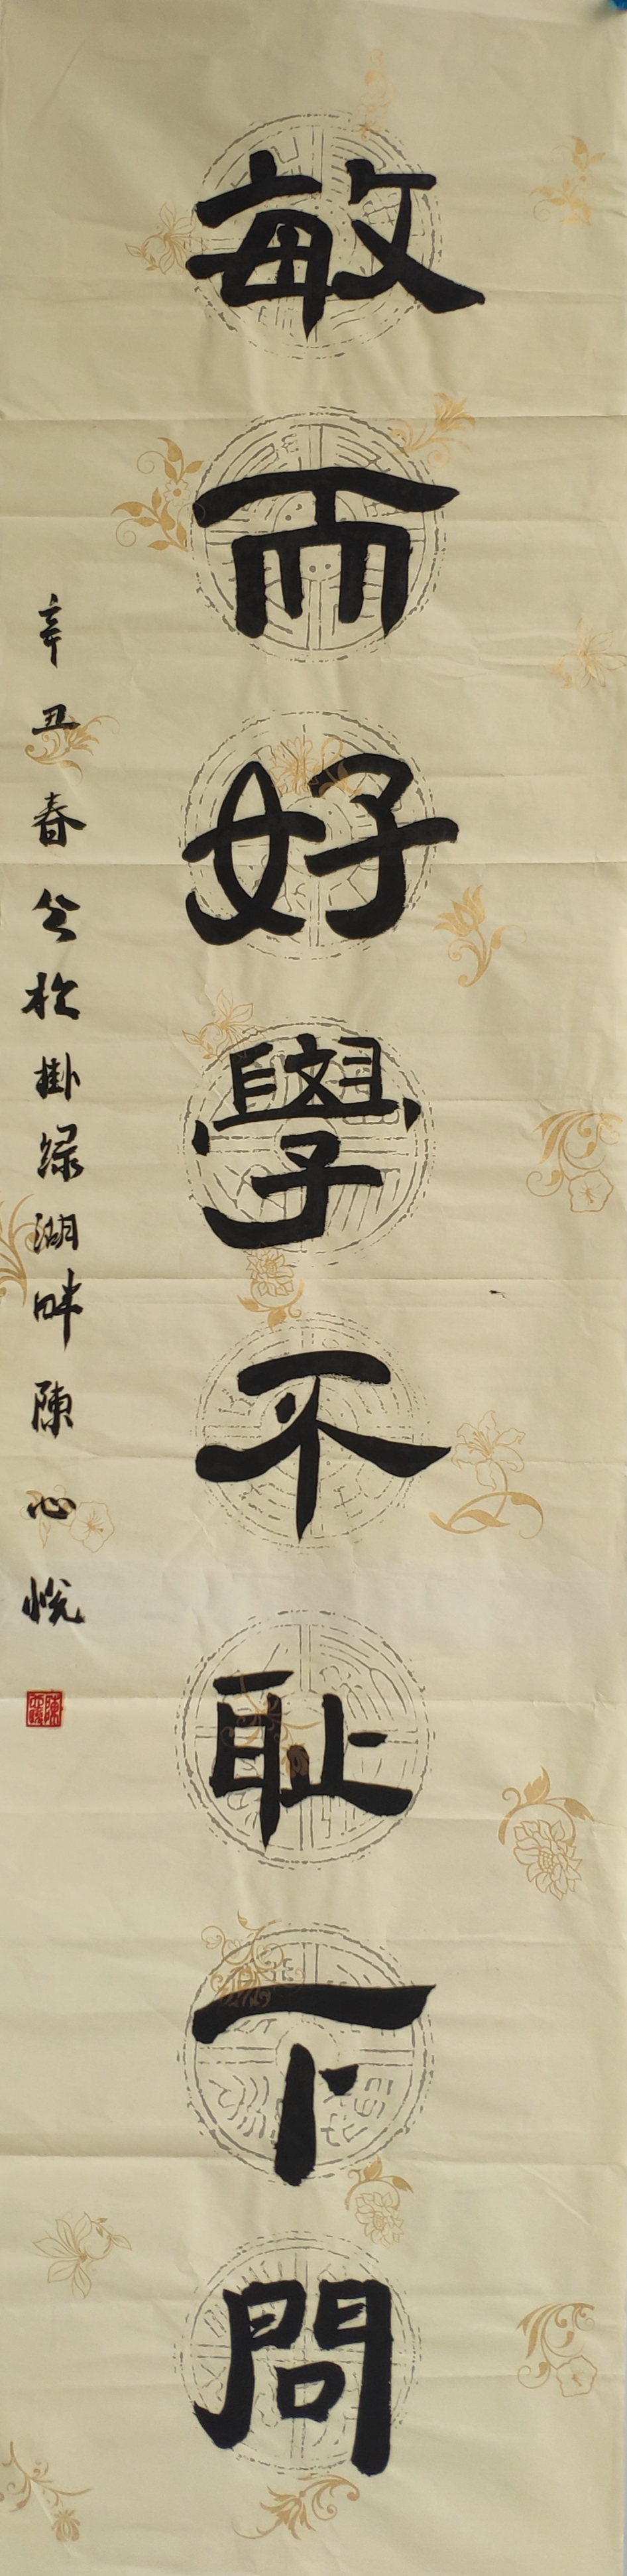 敏而好學不耻下問
辛丑春兮於掛绿湖畔陳心悦